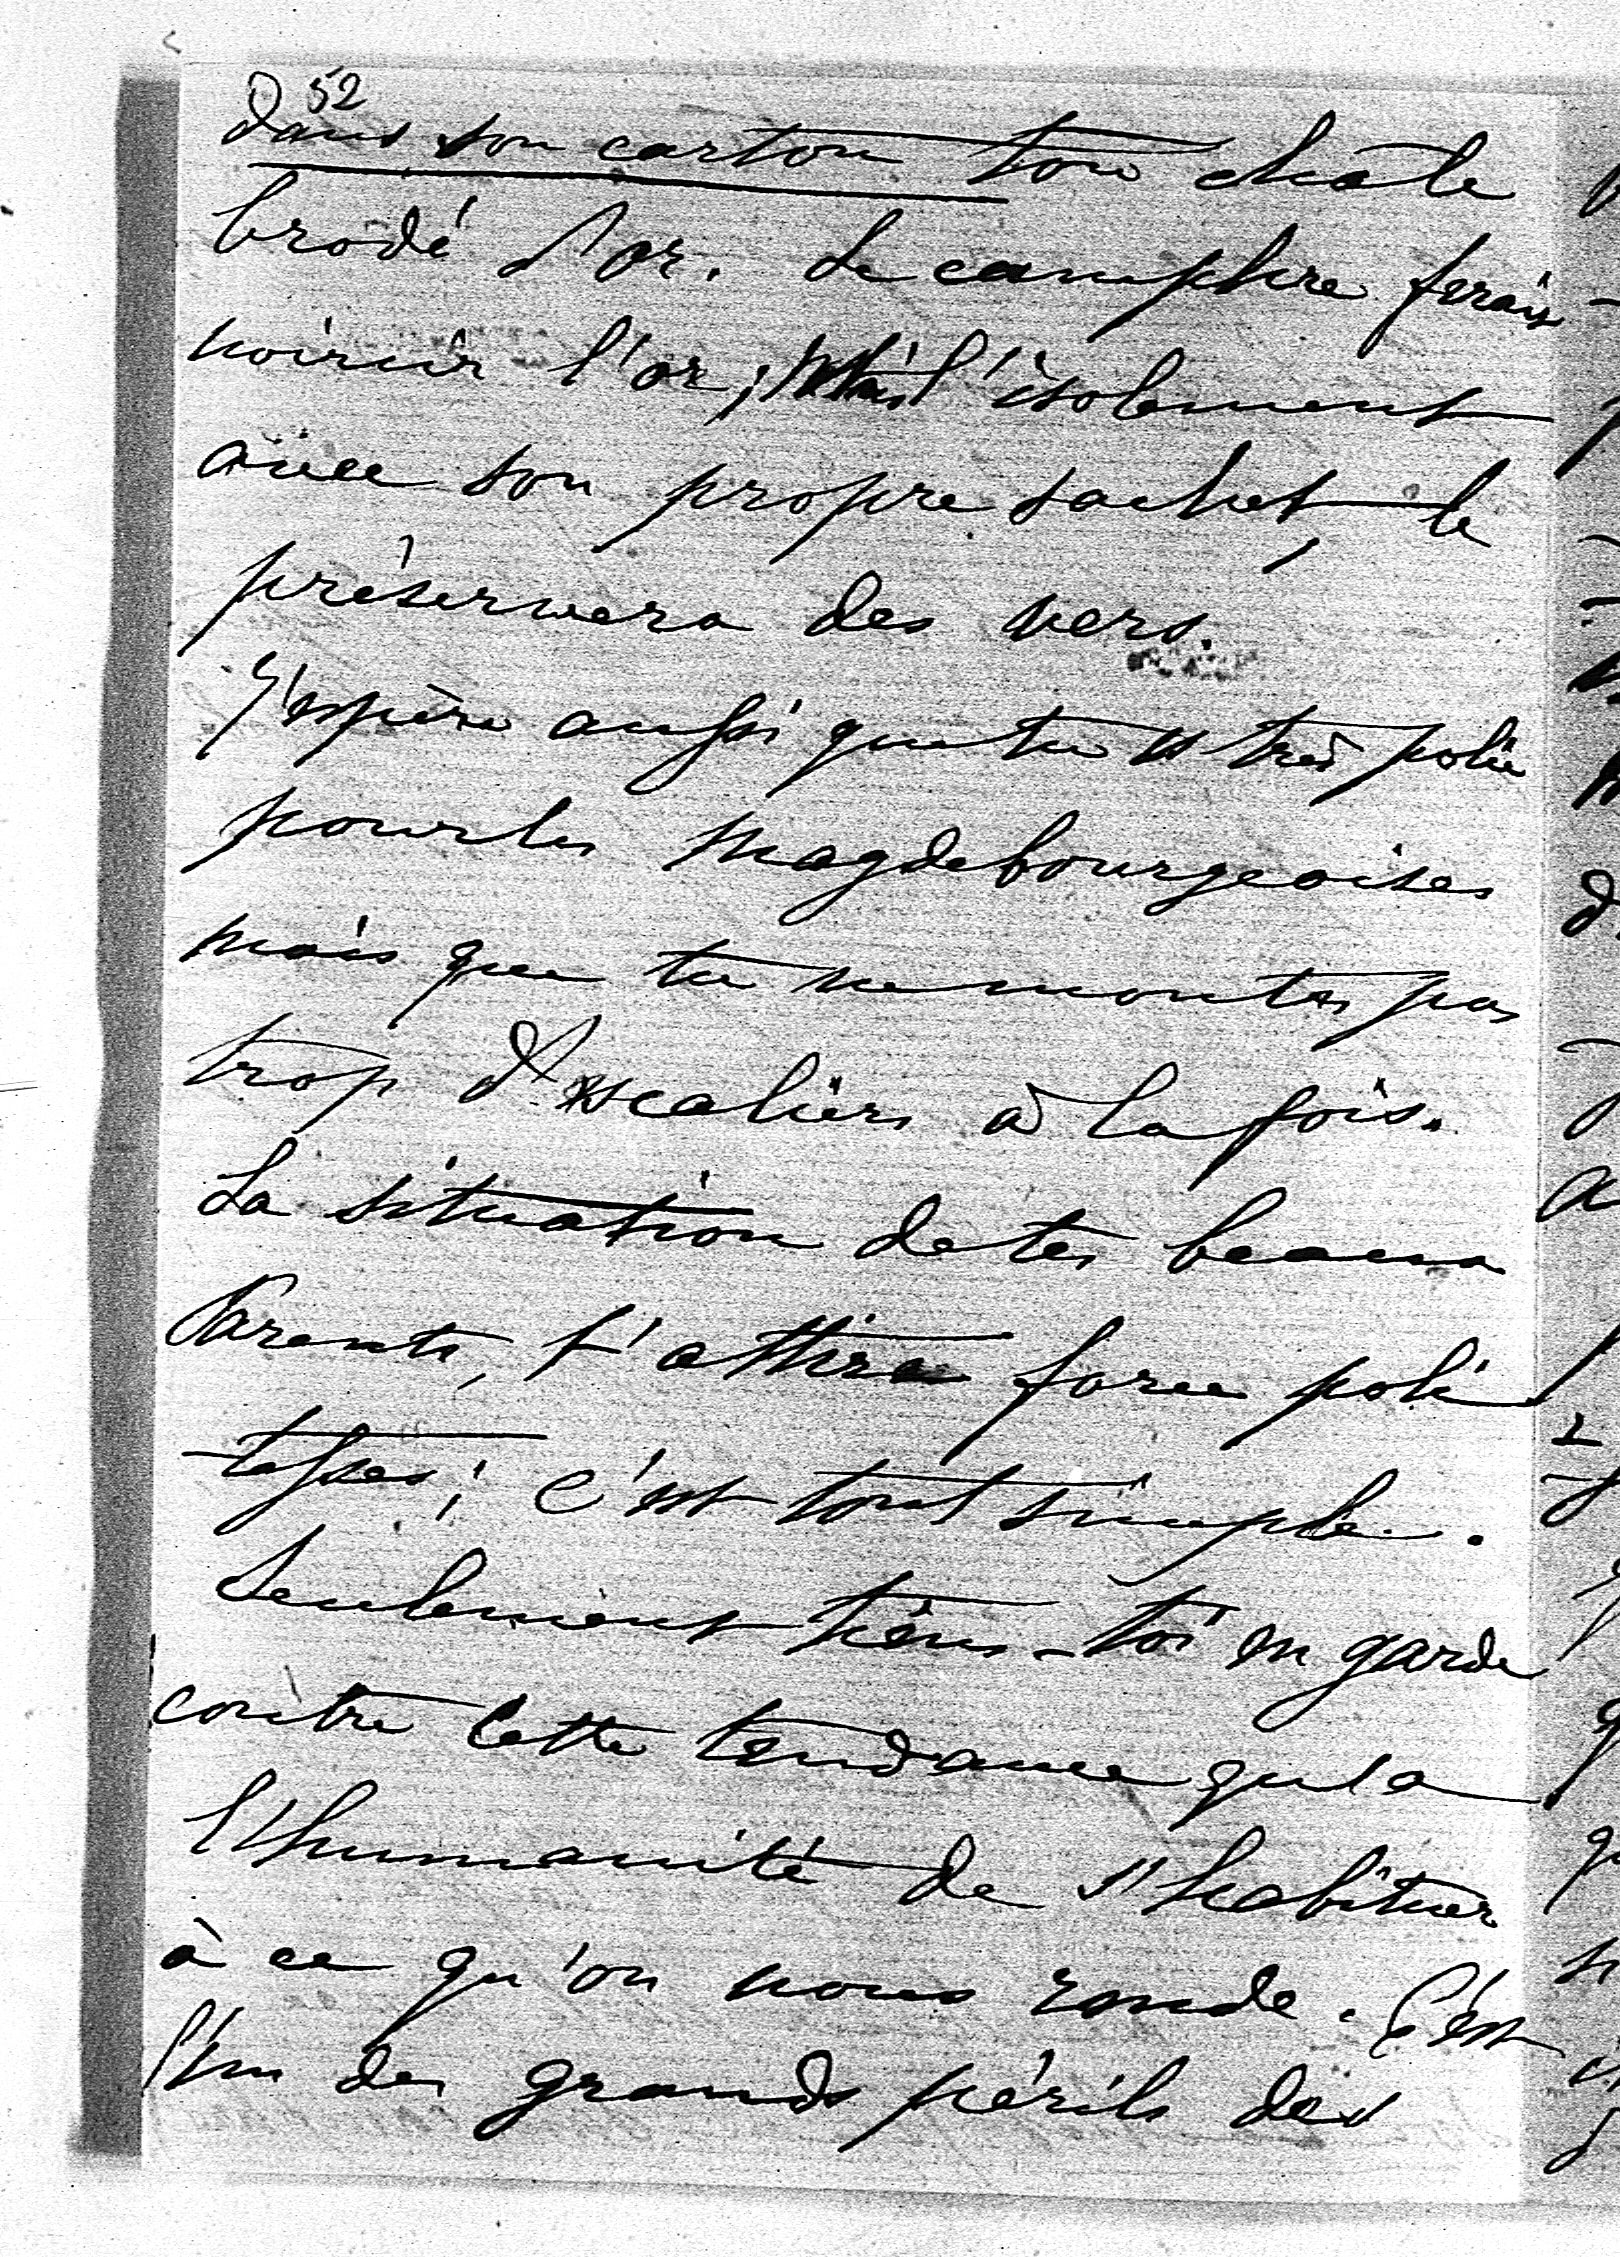 52
dans son carton ton châle
brodé d'or. Le camphre ferait
noircir l'or; Mais l'isolement
avec son propre sachet, le
préservera des vers.
J'espère aussi que tu es très polie
pour les Magdebourgeoises
mais que tu ne montes pas
trop d'escaliers à la fois.
La situation de tes beaux
Parents, t'attire force poli
-tesses; c'est tout simple.
Seulement tiens-toi en garde
contre cette tendance qu'a
l'humanité de s'habituer
à ce qu'on nous rende. C'est
l'un des grands périls des